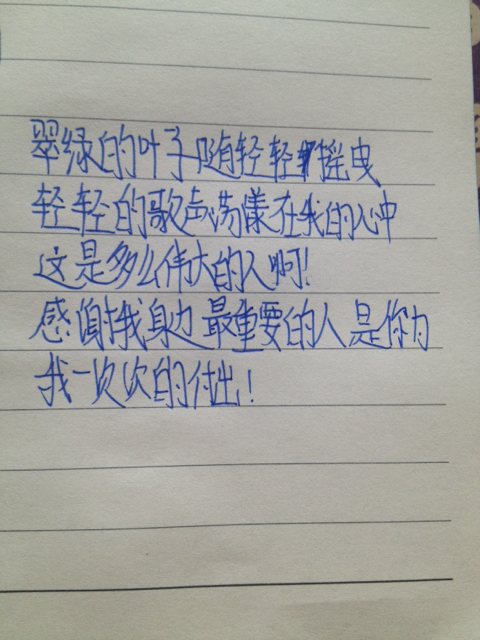 翠绿的叶子随轻轻摇曳
轻轻的歌声荡漾在我的心中
这是多么伟大的人啊!
感谢我身边最重要的人是你为
我一次次的付出!